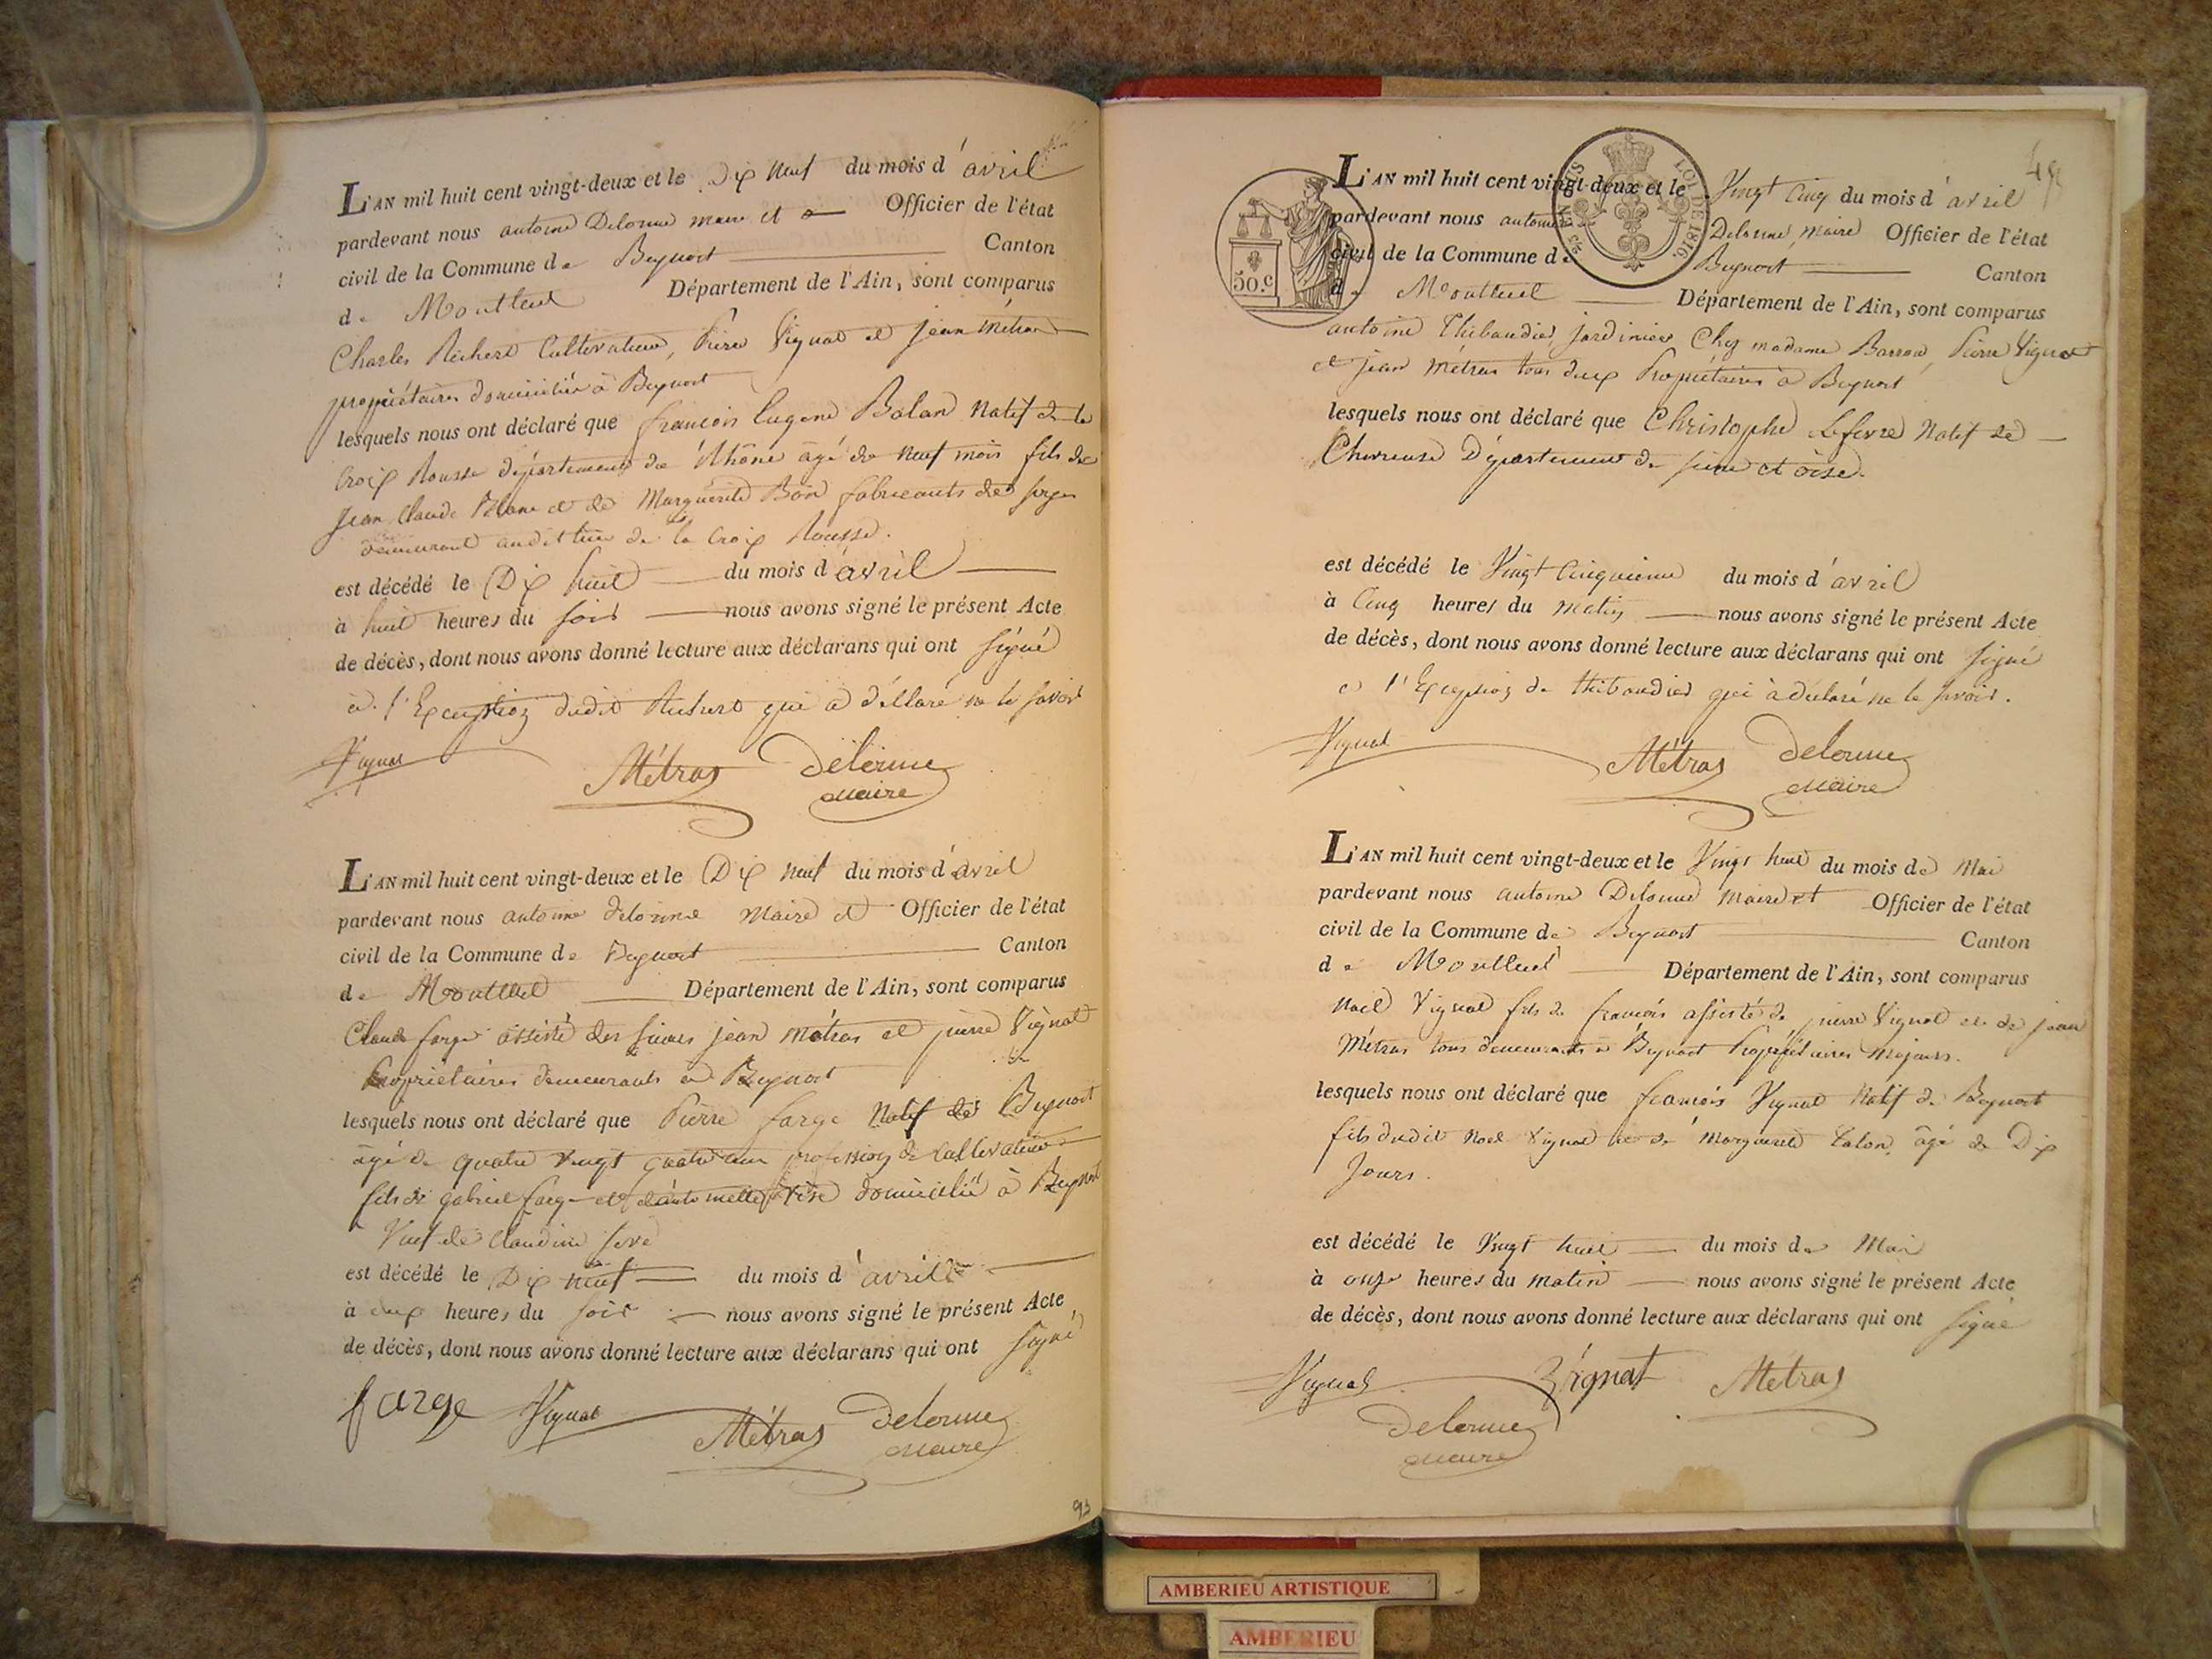 L'AN mil huit cent vingt-deux et le Dix neuf du mois d'avril
pardevant nous antoine Delorme maire et Officier de l'état
civil de la Commune de Beynost Canton
de Montluel Département de l'Ain, sont comparus
Charles Richero Cultivateur, Pierre Vignat et jean métras
propriétaires domiciliés à Beynost
lesquels nous ont déclaré que françois Eugene Balan natif de la
Croix Rousse département du Rhône âgé de neuf mois fils de
Jean Claude et de Marguerite Bon fabricants de
demeurant audit lieu de la Croix Rousse.
est décédé le Dix huit du mois d'avril
à huit heures du soir nous avons signé le présent Acte
de décès, dont nous avons donné lecture aux déclarans qui ont signé
à l'Exception dudit qui a déclaré ne le savoir
Vignat Métras Delorme
Maire
L'AN mil huit cent vingt-deux et le Dix neuf du mois d'avril
pardevant nous antoine delorme maire et Officier de l'état
civil de la Commune de Beynost Canton
de Montluel Département de l'Ain, sont comparus
Claude farge assisté des sieurs jean métras et pierre Vignat
Propriétaires demeurants à Beynost
lesquels nous ont déclaré que Pierre farge natif de Beynost
âgé de quatre vingt quatre ans profession de Cultivateur
fils de gabriel farge et d'antoinette domicilié à Beynost
Veuf de Claudine
est décédé le Dix neuf du mois d'avril
à heures du soir nous avons signé le présent Acte
de décès, dont nous avons donné lecture aux déclarans qui ont signé
farge Vignat Métras Delorme
Maire
93
49
50.c
LOI DE 1816.
L'AN mil huit cent vingt-deux et le Vingt Cinq du mois d'avril
pardevant nous antoine Delorme, maire Officier de l'état
civil de la Commune de Beynost Canton
de Montluel Département de l'Ain, sont comparus
antoine Thibaudier, jardinier Chez madame Barrou, Pierre Vignat
et jean métras tous deux Propriétaires à Beynost
lesquels nous ont déclaré que Christophe Lefevre natif de
Chevreuse Département de seine et oise.
est décédé le Vingt Cinquieme du mois d'avril
à Cinq heures du matin nous avons signé le présent Acte
de décès, dont nous avons donné lecture aux déclarans qui ont signé
a l'Exception de thibaudier qui à déclaré ne le savoir.
Vignat Métras Delorme
Maire
L'AN mil huit cent vingt-deux et le Vingt huit du mois de Mai
pardevant nous antoine Delorme maire et Officier de l'état
civil de la Commune de Beynost Canton
de Montluel Département de l'Ain, sont comparus
Noel Vignat fils de françois assisté de pierre Vignat et de jean
Métras tous demeurants à Beynost Propriétaires majeurs.
lesquels nous ont déclaré que françois Vignat natif de Beynost
fils dudit Noel Vignat et de Marguerite Talon, âgé de Dix
Jours.
est décédé le Vingt huit du mois de Mai
à onze heures du matin nous avons signé le présent Acte
de décès, dont nous avons donné lecture aux déclarans qui ont signé
Vignat Vignat Métras
Delorme
Maire
AMBERIEU ARTISTIQUE
AMBERIEU